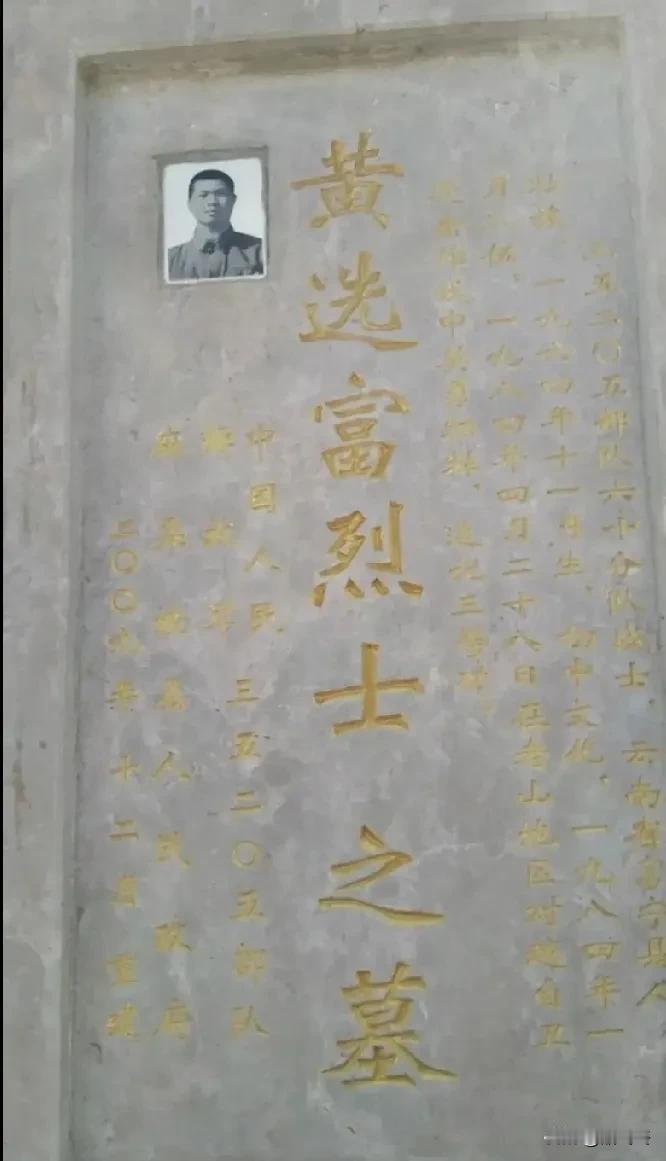 三五二〇五部队六十分队战士、云南省富宁县人
壮族、一九六四年十一月生、初中文化、一九八四年一
月入伍、一九八四年四月二十八日在老山地区对越自卫
还击作战中英勇牺牲、追记三等功。
黄选富烈士之墓
中国人民三五二〇五部队
解放军
麻栗坡县人民政府
二〇〇九年十二月重建